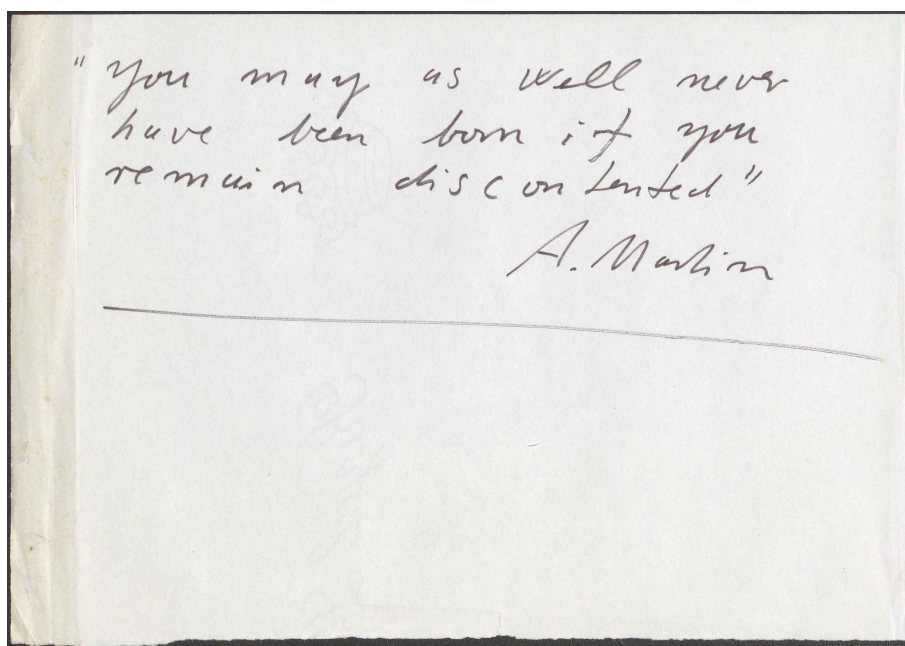 "You may as well never
have been born if you
remain discontented"
A. Martin